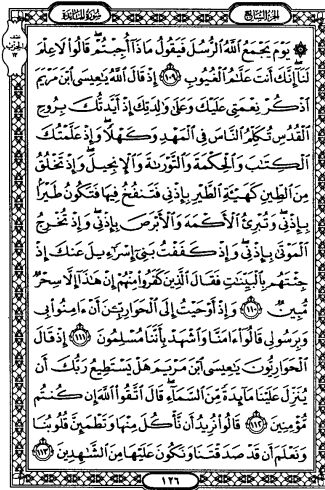 الجزء السابع
سورة المائدة
۞ يَوْمَ يَجْمَعُ ٱللَّهُ ٱلرُّسُلَ فَيَقُولُ مَاذَآ أُجِبْتُمْ قَالُوا۟ لَا عِلْمَ
لَنَآ إِنَّكَ أَنتَ عَلَّٰمُ ٱلْغُيُوبِ ١٠٩ إِذْ قَالَ ٱللَّهُ يَٰعِيسَى ٱبْنَ مَرْيَمَ
ٱذْكُرْ نِعْمَتِى عَلَيْكَ وَعَلَىٰ وَٰلِدَتِكَ إِذْ أَيَّدتُّكَ بِرُوحِ
ٱلْقُدُسِ تُكَلِّمُ ٱلنَّاسَ فِى ٱلْمَهْدِ وَكَهْلًا وَإِذْ عَلَّمْتُكَ
ٱلْكِتَٰبَ وَٱلْحِكْمَةَ وَٱلتَّوْرَىٰةَ وَٱلْإِنجِيلَ وَإِذْ تَخْلُقُ
مِنَ ٱلطِّينِ كَهَيْـَٔةِ ٱلطَّيْرِ بِإِذْنِى فَتَنفُخُ فِيهَا فَتَكُونُ طَيْرًۢا
بِإِذْنِى وَتُبْرِئُ ٱلْأَكْمَهَ وَٱلْأَبْرَصَ بِإِذْنِى وَإِذْ تُخْرِجُ
ٱلْمَوْتَىٰ بِإِذْنِى وَإِذْ كَفَفْتُ بَنِىٓ إِسْرَٰٓءِيلَ عَنكَ إِذْ
جِئْتَهُم بِٱلْبَيِّنَٰتِ فَقَالَ ٱلَّذِينَ كَفَرُوا۟ مِنْهُمْ إِنْ هَٰذَآ إِلَّا سِحْرٌ
مُّبِينٌ ١١٠ وَإِذْ أَوْحَيْتُ إِلَى ٱلْحَوَارِيِّـۧنَ أَنْ ءَامِنُوا۟ بِى
وَبِرَسُولِى قَالُوٓا۟ ءَامَنَّا وَٱشْهَدْ بِأَنَّنَا مُسْلِمُونَ ١١١ إِذْ قَالَ
ٱلْحَوَارِيُّونَ يَٰعِيسَى ٱبْنَ مَرْيَمَ هَلْ يَسْتَطِيعُ رَبُّكَ أَن
يُنَزِّلَ عَلَيْنَا مَآئِدَةً مِّنَ ٱلسَّمَآءِ قَالَ ٱتَّقُوا۟ ٱللَّهَ إِن كُنتُم
مُّؤْمِنِينَ ١١٢ قَالُوا۟ نُرِيدُ أَن نَّأْكُلَ مِنْهَا وَتَطْمَئِنَّ قُلُوبُنَا
وَنَعْلَمَ أَن قَدْ صَدَقْتَنَا وَنَكُونَ عَلَيْهَا مِنَ ٱلشَّٰهِدِينَ ١١٣
١٢٦